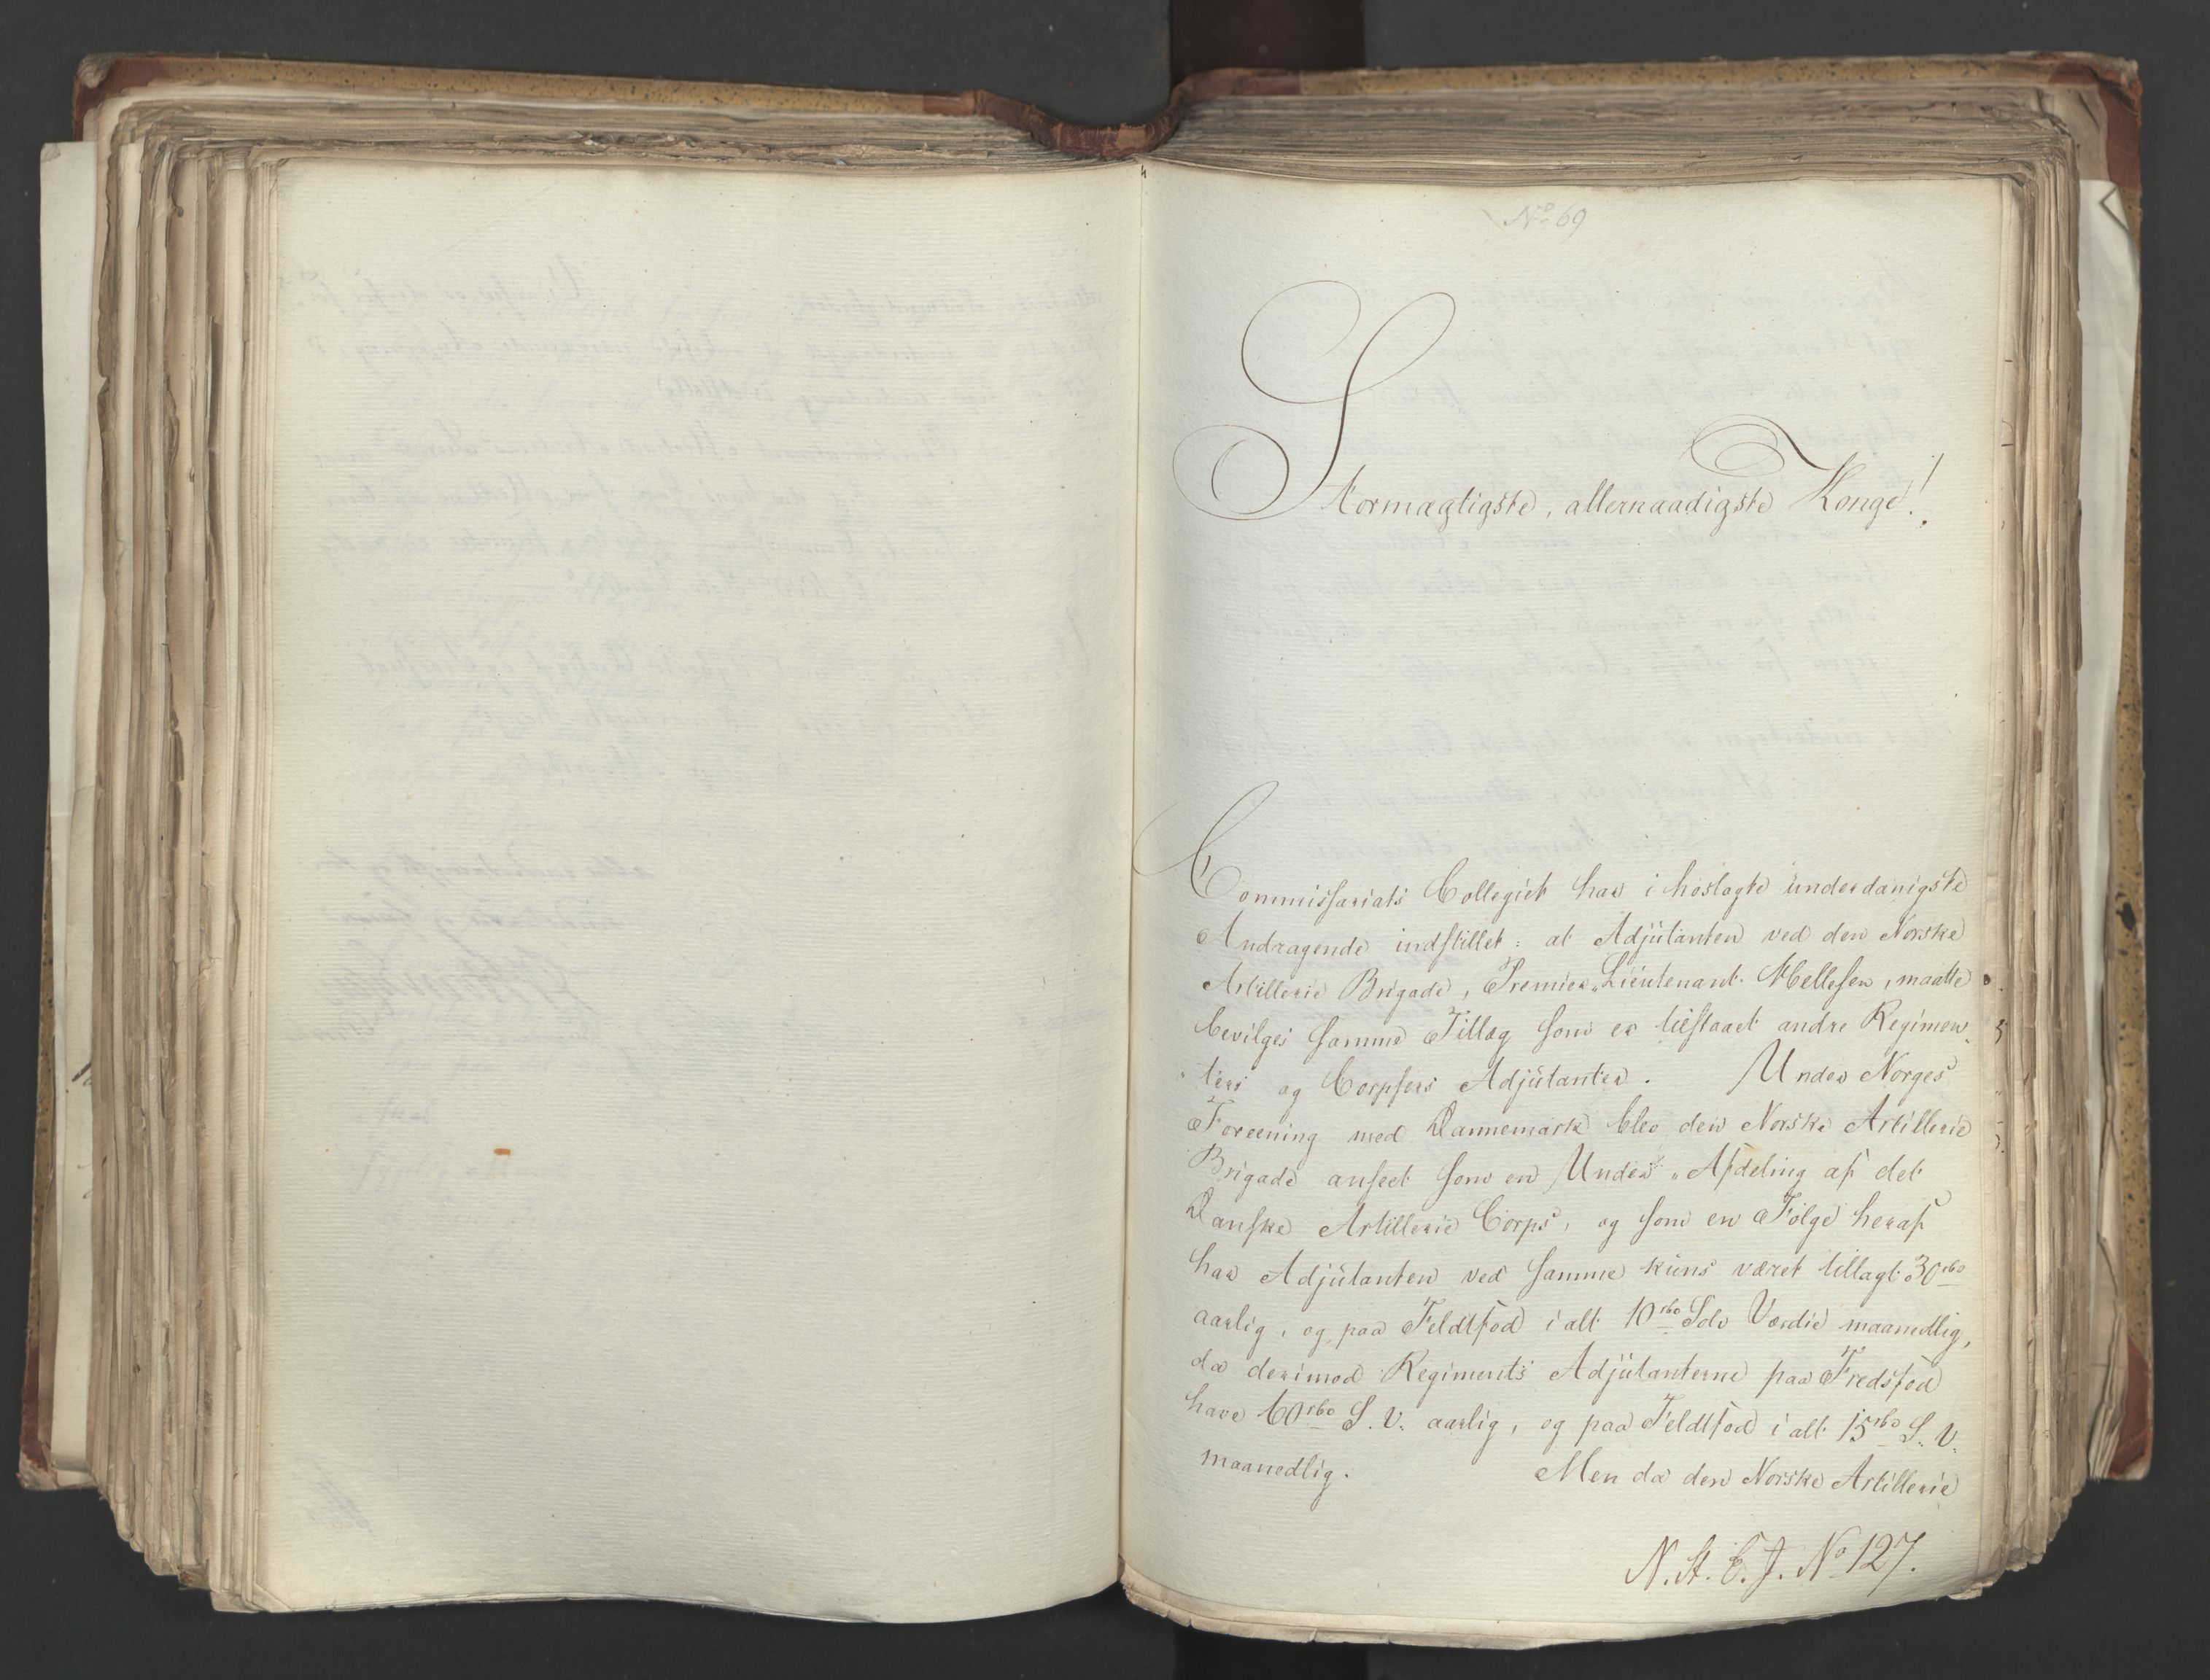 No 69
Stormægtigste, allernaadigste Konge!
Commissariats Collegiet har i hoslagte underdanigste
Andragende indstillet: at Adjutanten ved den Norske
Artillerie Brigade, Premier-Lieutenant Mellesen, maatte
bevilges samme Tillæg som er tilstaaet andre Regimen-
ters og Corpsers Adjutanter. Under Norges
Foreening med Dannemark blev den Norske Artillerie
Brigade anseet som en Under-Afdeling af det
Danske Artillerie Corps, og som en Følge heraf
har Adjutanten ved samme kuns været tillagt 30 rbd
aarlig, og paa Feldtfod i alt 10 rbd Sølv Værdie maanedlig,
da derimod Regiments Adjutanterne paa Fredsfod
have 60 rbd S. V. aarlig, og paa Feldtfod i alt 15 rbd S. V.
maanedlig. Men da den Norske Artillerie
N. A. C. J. No 127.